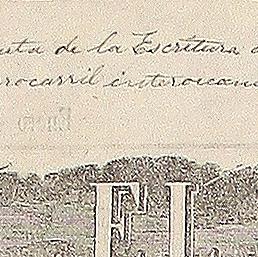 uta de la Escritura
rocarril interocean
EL